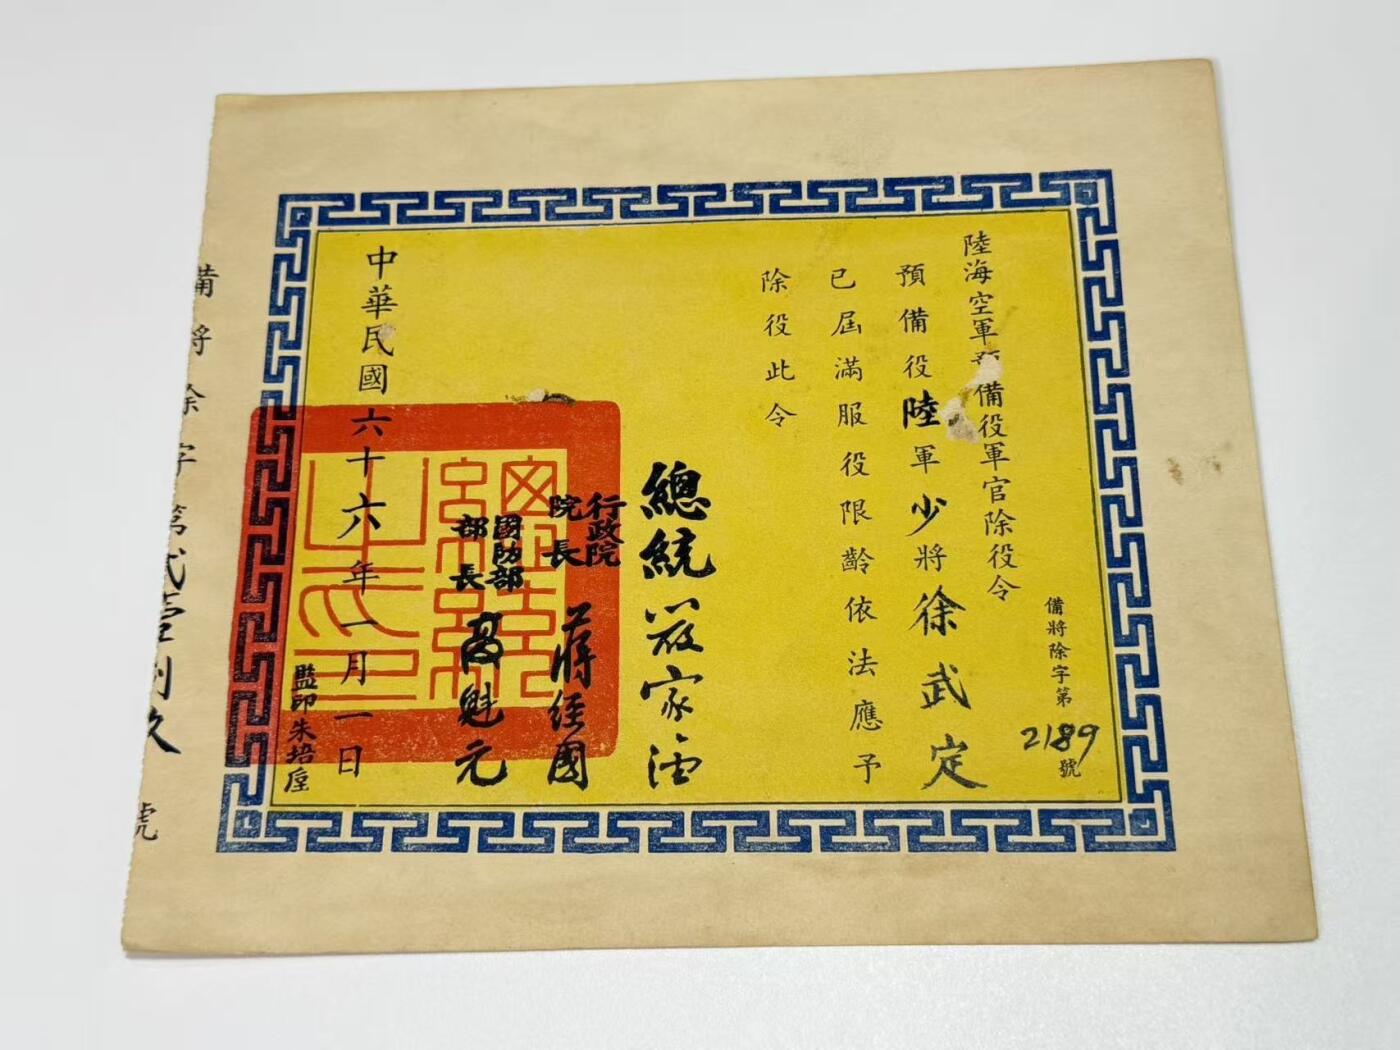 陸海空軍預備役軍官除役令
備將除字第2189號
預備役陸軍少將徐武定
已屆滿服役限齡依法應予
除役此令
總統 嚴家淦
行政院院長 蔣經國
國防部部長 高魁元
中華民國六十六年一月一日
監印朱培垕
總統之印
備將除字第貳壹捌玖號